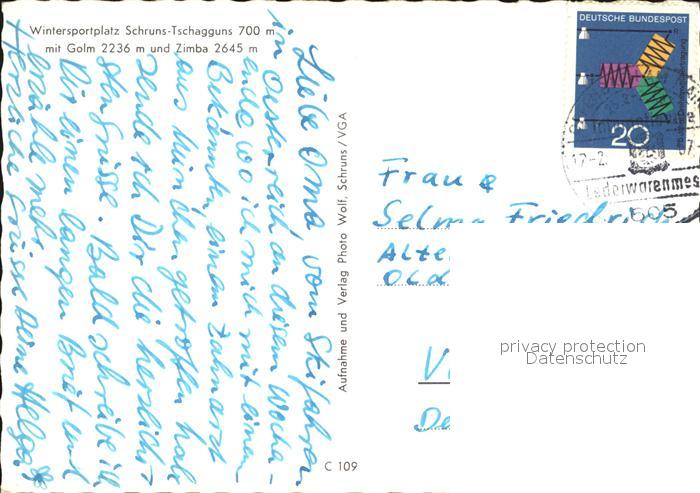 Wintersportplatz Schruns-Tschagguns 700 m
mit Golm 2236 m und Zimba 2645 m
Liebe Oma, vom Skifahren
in Österreich an diesem Wochen-
ende wo ich mich mit einem
Bekannten, einem Zahnarzt
aus München getroffen habe
sende ich Dir die herzlich-
sten Grüsse. Bald schreibe ich
Dir einen langen Brief und
erzähle mehr
Herzliche Grüsse Deine Helga
Aufnahme und Verlag Photo Wolf, Schruns/VGA
C 109
DEUTSCHE BUNDESPOST
20
17-2.
Lederwarenmes
605
Frau
Selma Friedrich
Alte
Old
V
De
privacy protection
Datenschutz